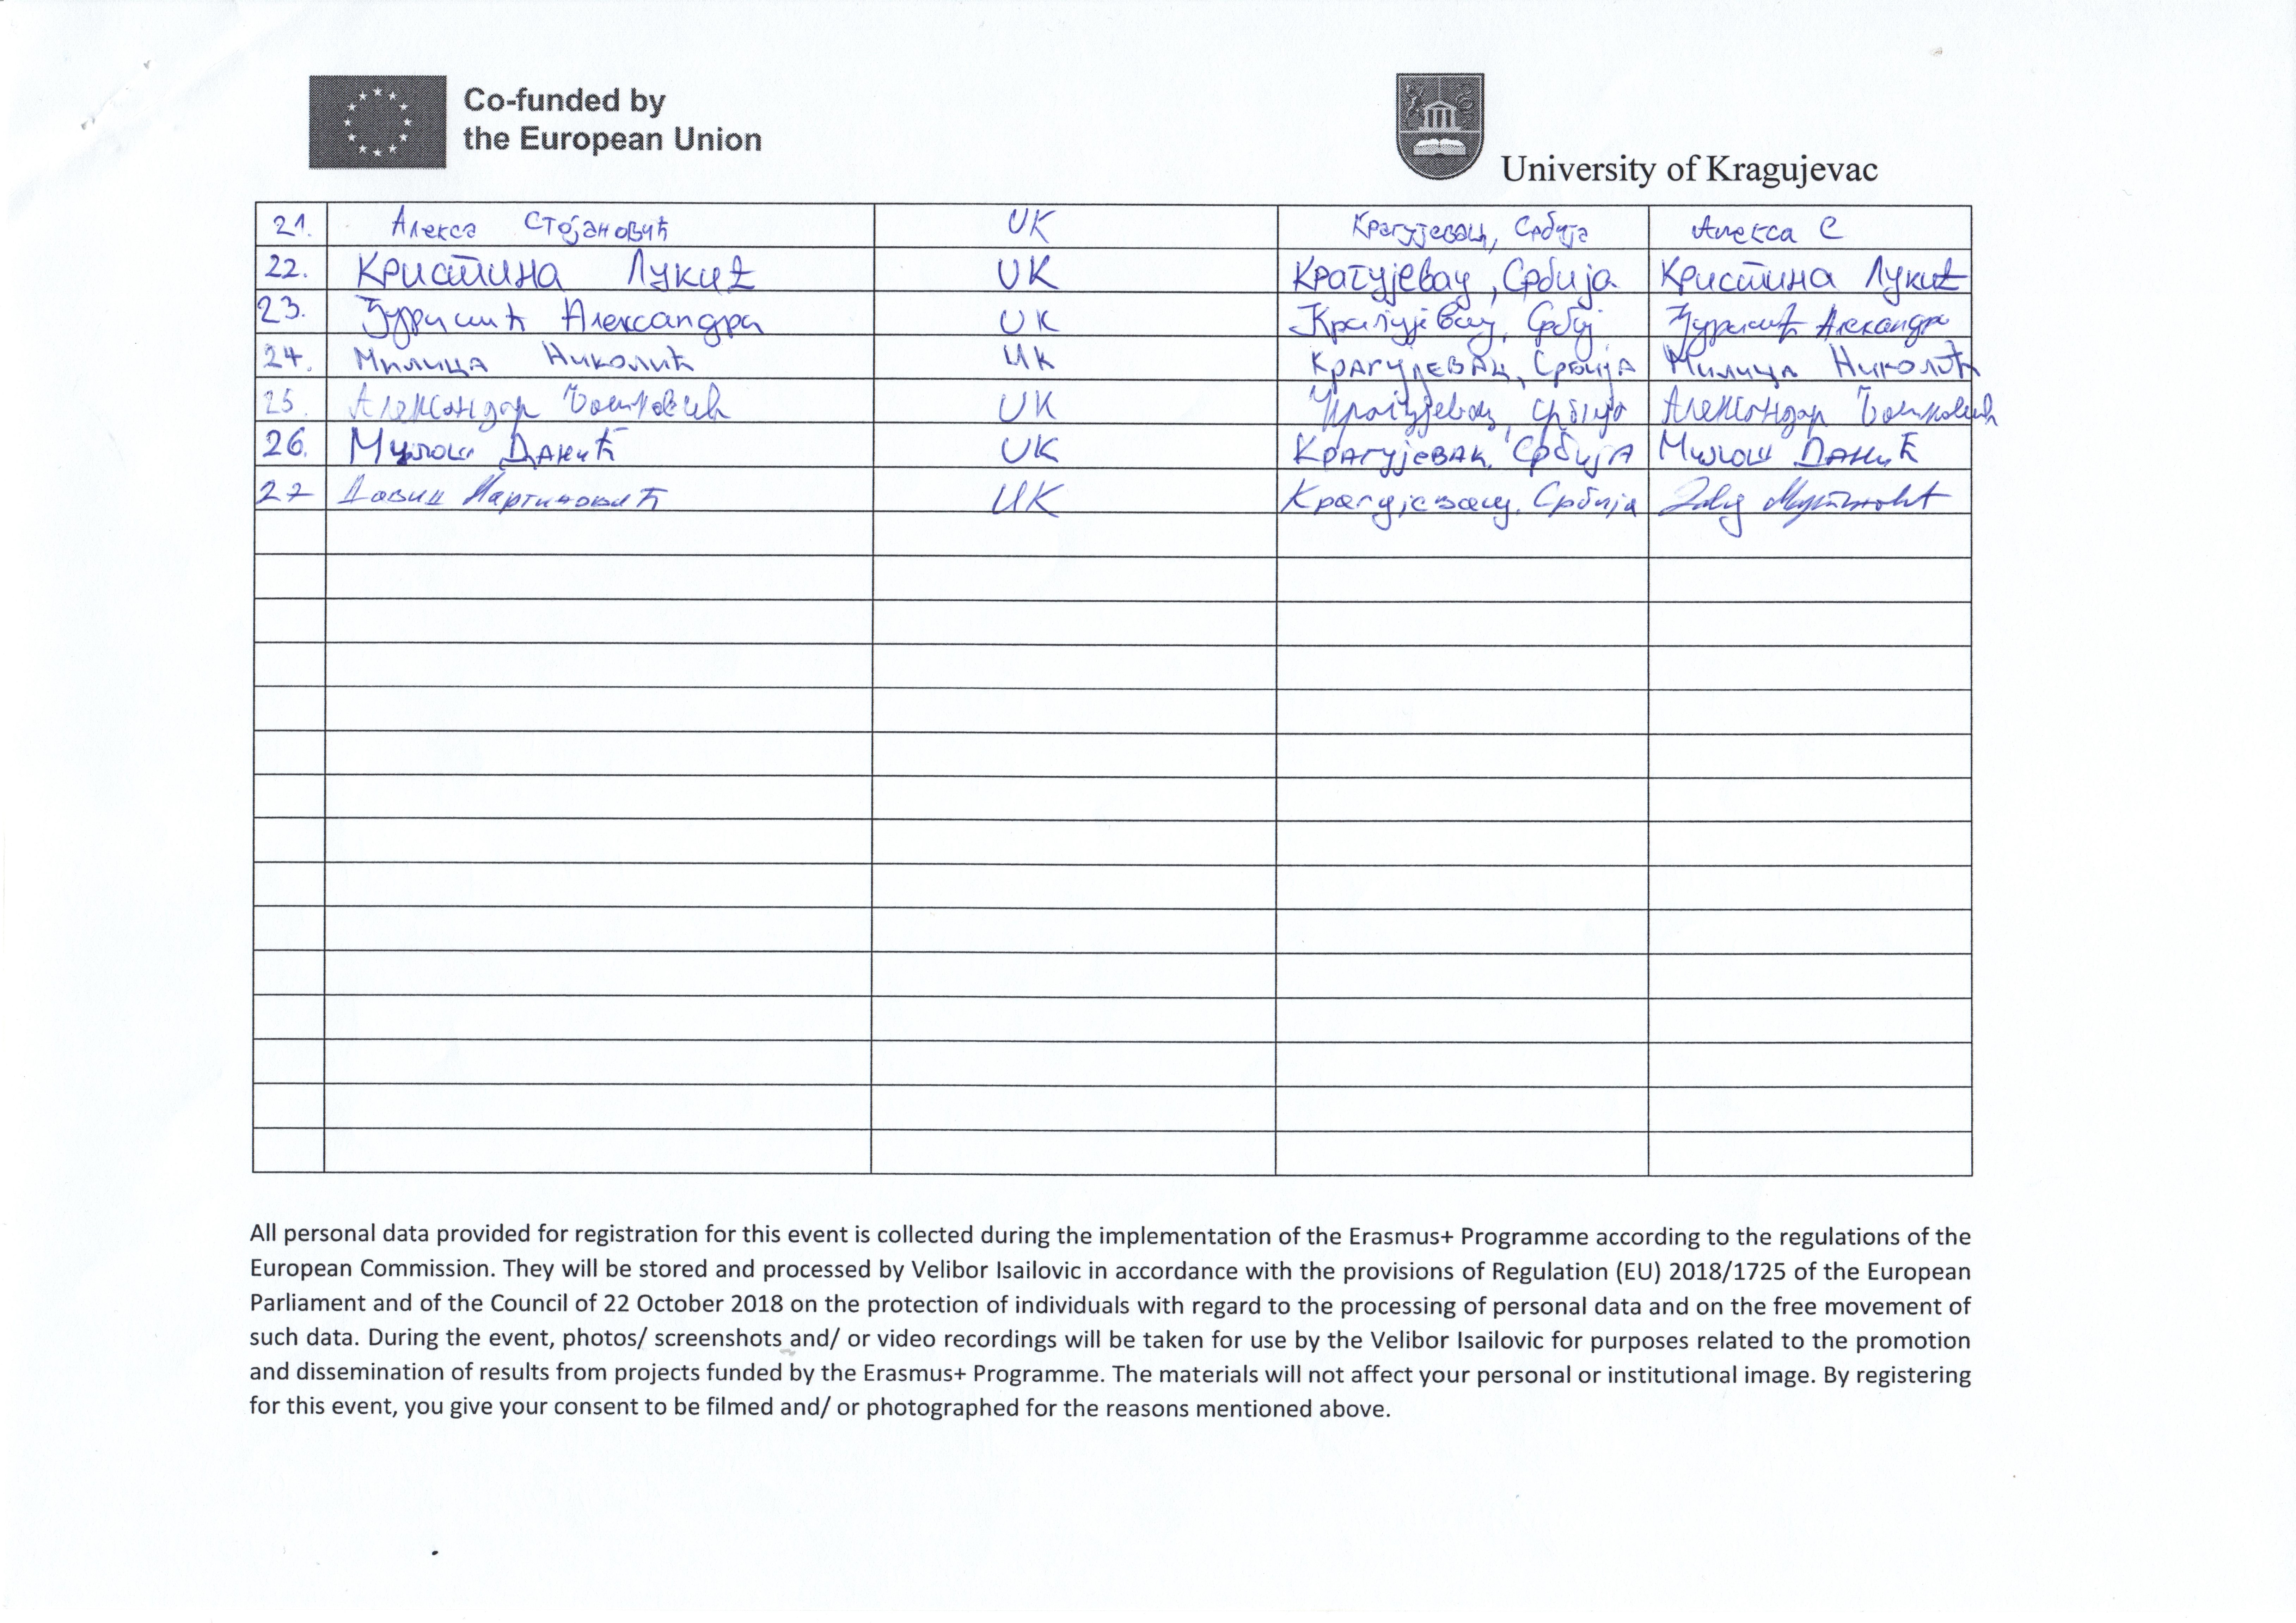 Co-funded by
the European Union
University of Kragujevac
21. Алекса Стојановић UK Крагујевац, Србија Алекса С
22. Кристина Лукић UK Крагујевац, Србија Кристина Лукић
23. Ђуришић Александра UK Крагујевац, Србиј Ђуришић Александра
24. Милица Николић UK Крагујевац, Србија Милица Николић
25. Александар UK Крагујевац, Србија Александар
26. Милош Данић UK Крагујевац, Србија Милош Данић
27 Давид Мартиновић UK Крагујевац, Србија
All personal data provided for registration for this event is collected during the implementation of the Erasmus+ Programme according to the regulations of the
European Commission. They will be stored and processed by Velibor Isailovic in accordance with the provisions of Regulation (EU) 2018/1725 of the European
Parliament and of the Council of 22 October 2018 on the protection of individuals with regard to the processing of personal data and on the free movement of
such data. During the event, photos/ screenshots and/ or video recordings will be taken for use by the Velibor Isailovic for purposes related to the promotion
and dissemination of results from projects funded by the Erasmus+ Programme. The materials will not affect your personal or institutional image. By registering
for this event, you give your consent to be filmed and/ or photographed for the reasons mentioned above.